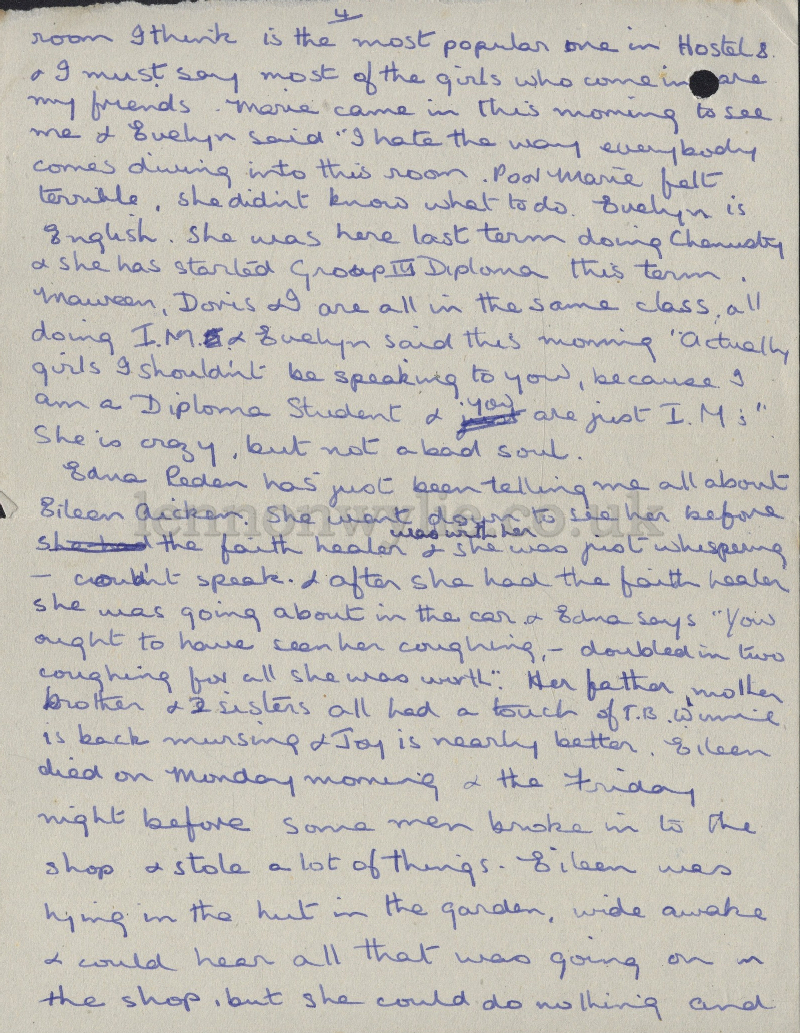 4
room I think is the most popular one in Hostel 8.
& I must say most of the girls who come in are
my friends. Marie came in this morning to see
me & Evelyn said "I hate the way everybody
comes diving into this room. Poor Marie felt
terrible, she didn't know what to do. Evelyn is
English. She was here last term doing Chemistry
& she has started Group III Diploma this term.
Maureen, Doris & I are all in the same class, all
doing I.M. & Evelyn said this morning "Actually
girls I shouldn't be speaking to you, because I
am a Diploma Student & you are just I.M's"
She is crazy, but not a bad soul.
Edna Peden has just been telling me all about
Eileen Aicken. She went down to see her before
she had the faith healer was with her & she was just whispering
– couldn't speak. & after she had the faith healer
she was going about in the car & Edna says "You
ought to have seen her coughing, – doubled in two
coughing for all she was worth". Her father, mother
brother & 2 sisters all had a touch of T.B. Winnie
is back nursing & Joy is nearly better. Eileen
died on Monday morning & the Friday
night before some men broke in to the
shop & stole a lot of things. Eileen was
lying in the hut in the garden, wide awake
& could hear all that was going on in
the shop, but she could do nothing and
lennonwylie.co.uk